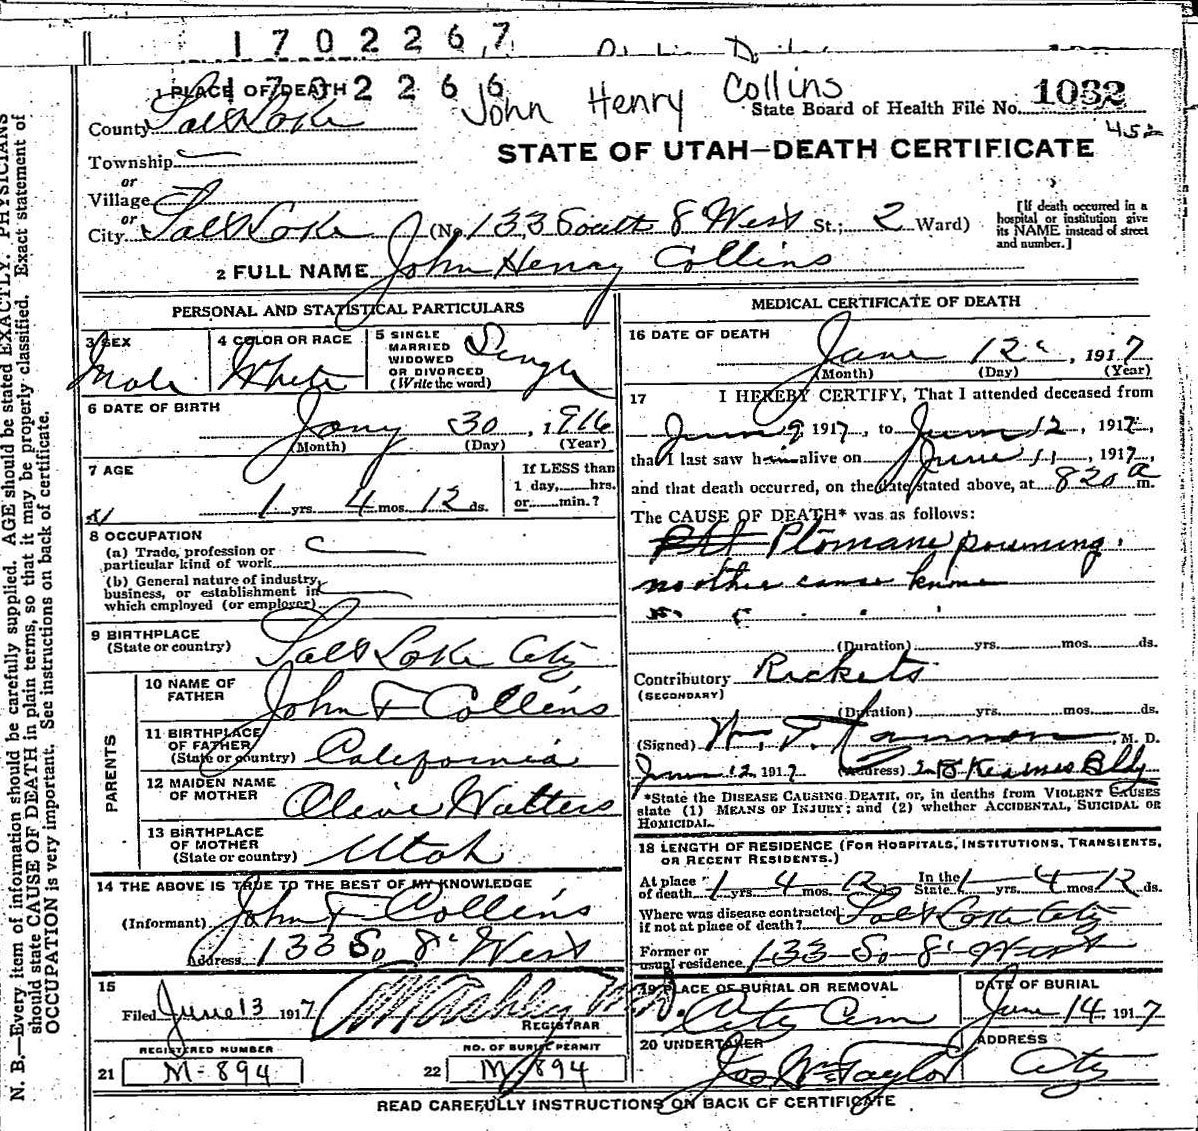 1702267
1702266
John Henry Collins
State Board of Health File No. 1032
452
1 PLACE OF DEATH
County Salt Lake
STATE OF UTAH—DEATH CERTIFICATE
Township
or
Village
or
City Salt Lake (No. 133 South 8 West St.; 2 Ward)
[If death occurred in a
hospital or institution give
its NAME instead of street
and number.]
2 FULL NAME John Henry Collins
PERSONAL AND STATISTICAL PARTICULARS
3 SEX
Male
4 COLOR OR RACE
White
5 SINGLE
MARRIED
WIDOWED
OR DIVORCED
(Write the word)
Single
6 DATE OF BIRTH
Jany 30, 1916
(Month) (Day) (Year)
7 AGE
1 yrs. 4 mos. 12 ds.
If LESS than
1 day, hrs.
or min.?
8 OCCUPATION
(a) Trade, profession or
particular kind of work
(b) General nature of industry,
business, or establishment in
which employed (or employer)
9 BIRTHPLACE
(State or country) Salt Lake City
PARENTS
10 NAME OF
FATHER John F Collins
11 BIRTHPLACE
OF FATHER
(State or country) California
12 MAIDEN NAME
OF MOTHER Olive Walters
13 BIRTHPLACE
OF MOTHER
(State or country) Utah
14 THE ABOVE IS TRUE TO THE BEST OF MY KNOWLEDGE
(Informant) John F Collins
Address 133 So 8' West
15
Filed June 13 1917
REGISTRAR
REGISTERED NUMBER
21 M-894
NO. OF BURIAL PERMIT
22 M-894
MEDICAL CERTIFICATE OF DEATH
16 DATE OF DEATH
June 12, 1917
(Month) (Day) (Year)
17 I HEREBY CERTIFY, That I attended deceased from
June 9 1917, to June 12, 1917,
that I last saw him alive on June 11, 1917,
and that death occurred, on the date stated above, at 820 a m.
The CAUSE OF DEATH* was as follows:
Ptomane poisoning.
no other cause known
(Duration) yrs. mos. ds.
Contributory Rickets
(SECONDARY)
(Duration) yrs. mos. ds.
(Signed) W. T. M. D.
June 12 1917 (Address) Kearnes Bldg
*State the DISEASE CAUSING DEATH, or, in deaths from VIOLENT CAUSES
state (1) MEANS OF INJURY; and (2) whether ACCIDENTAL, SUICIDAL OR
HOMICIDAL.
18 LENGTH OF RESIDENCE (FOR HOSPITALS, INSTITUTIONS, TRANSIENTS,
OR RECENT RESIDENTS.)
At place of death 1 yrs. 4 mos. 12 ds. In the State 1 yrs. 4 mos. 12 ds.
Where was disease contracted
if not at place of death? Salt Lake City
Former or
usual residence 133 So 8' West
19 PLACE OF BURIAL OR REMOVAL
City Cem
DATE OF BURIAL
June 14, 1917
20 UNDERTAKER
Jos Wm Taylor
ADDRESS
City
READ CAREFULLY INSTRUCTIONS ON BACK OF CERTIFICATE
N. B.—Every item of information should be carefully supplied. AGE should be stated EXACTLY. PHYSICIANS
should state CAUSE OF DEATH in plain terms, so that it may be properly classified. Exact statement of
OCCUPATION is very important. See instructions on back of certificate.